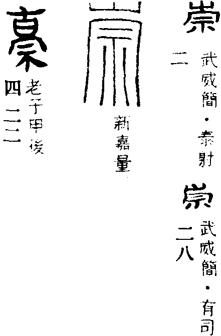 崇
武威簡・泰射
二
崇
武威簡・有司
二八
崇
新嘉量
老子甲後
四二二